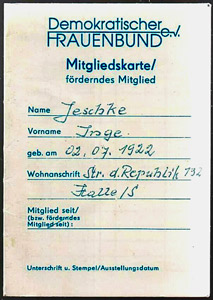 Demokratischer
FRAUENBUND e.V.
Mitgliedskarte/
förderndes Mitglied
Name Jeschke
Vorname Inge
geb. am 02.07.1922
Wohnanschrift Str. d. Republik 132
Halle/S
Mitglied seit/
(bzw. förderndes
Mitglied seit):
Unterschrift u. Stempel/Ausstellungsdatum